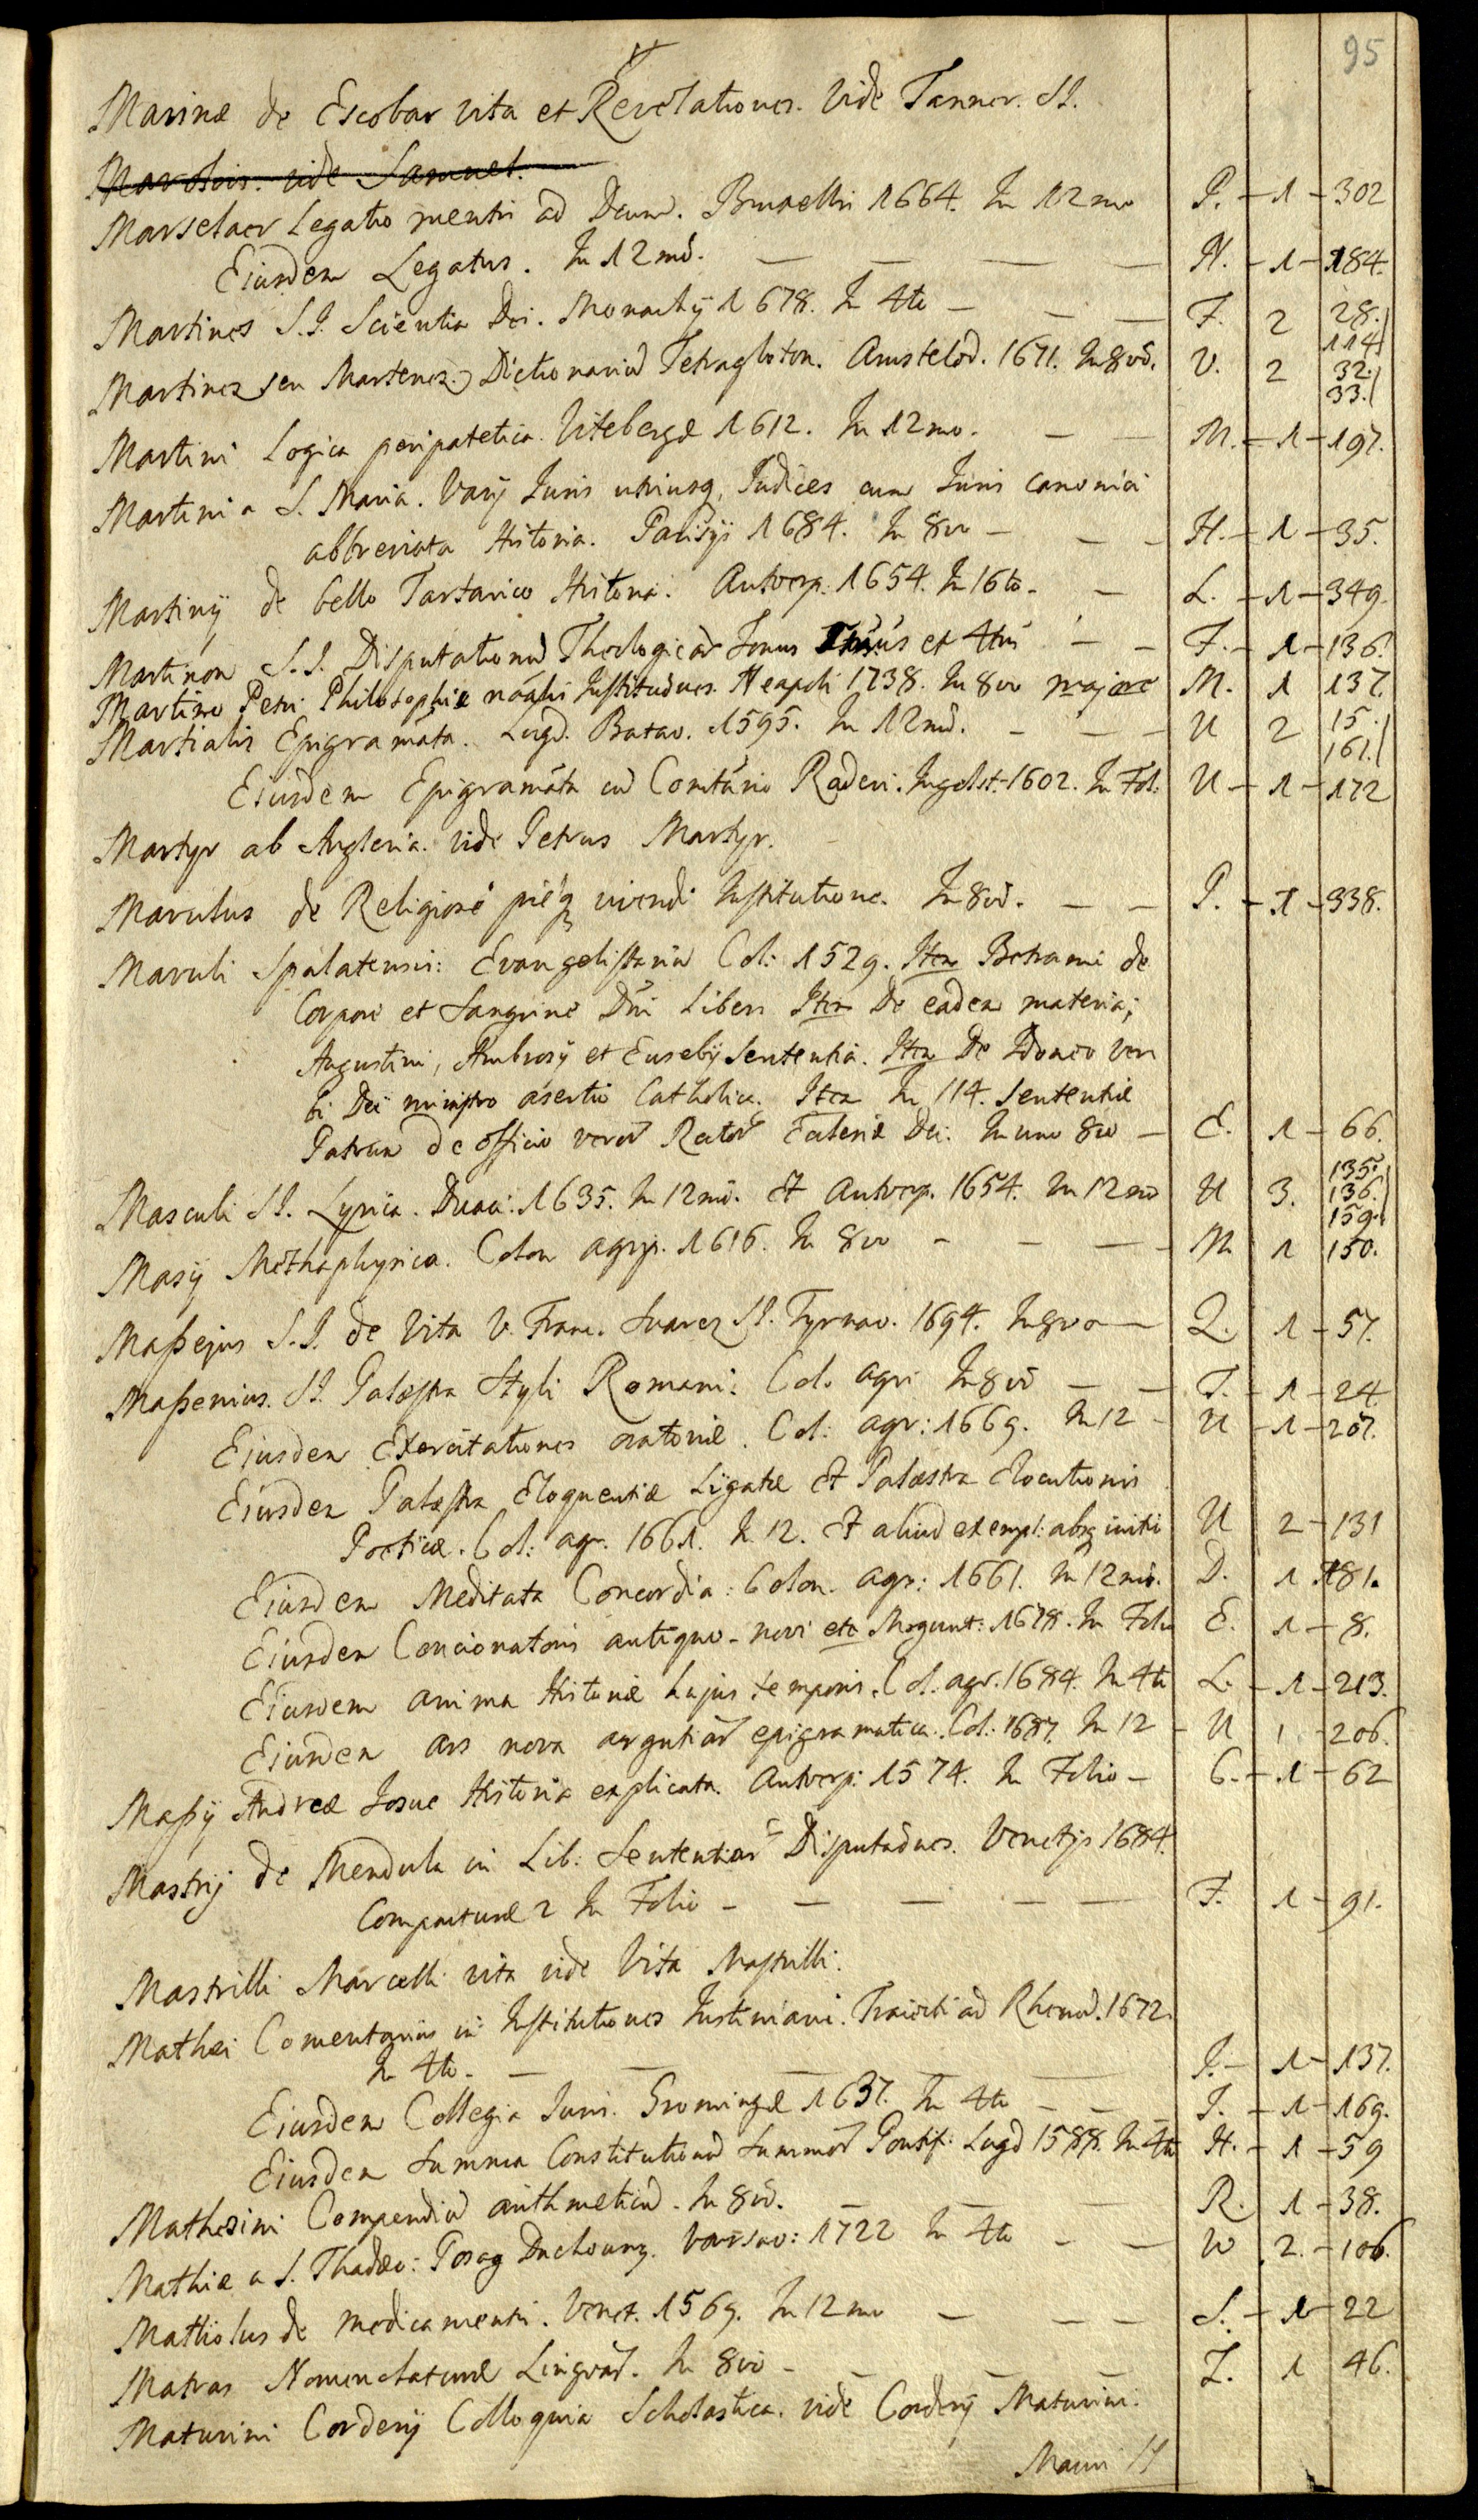 95
Marinæ de Escobar vita et Revelationes. Vide Tanner. SI.
Marolois. vide Samuel.
Marselaer Legatio mentis ad Deum. Bruxellis 1664. In 12mo P. - 1 - 302
Eiusdem Legatus. In 12mō. — — — — H. - 1 - 184.
Martines S.I. Scientia Dei. Monachij 1678. In 4to — — — F. 2 28. 114
Martinez seu Martenez. Dictionariū Tetragloton. Amstelod. 1671. In 8vō. V. 2 32. 33.
Martini Logica peripatetica. Vitebergæ 1612. In 12mo. — — M. - 1 - 197.
Martini a S. Maria. Varij Iuris utriusq, Indices cum Iuris canonici
abbreviata Historia. Parisijs 1684. In 8vo — — — H. - 1 - 35.
Martinij de bello Tartarico Historia. Antverp: 1654. In 16to. — L. - 1 - 349.
Martinon S.I. Disputationū Theologicar Tomus et 4tus — — F. - 1 - 136.
Martino Petri Philosophiæ nāālis Institutiones. Neapoli 1738. In 8vo majore M. 1 137.
Martialis Epigramāta. Lugd. Batav. 1595. In 12mō. — — — U 2 15. 161.
Eiusdem Epigramāta cū Comtārio Raderi. Ingolst. 1602. In Fol. U - 1 - 172
Martyr ab Angleria. vide Petrus Martyr.
Marulus de Religiosè pièq vivendi Institutione. In 8vō. — — P. - 1 - 338.
Maruli Spalatensis: Evangelistariū Col: 1529. Item Betrami de
Corpore et Sanguine Dni Liber. Item De eadem materia;
Augustini, Ambrosij et Eusebij Sententia. Item De Idoneo ver
bi Dei ministro asertio Catholica. Item In 114. Sententiæ
Patrum de officio veror Rector Ecclesiæ Dei. In uno 8vo — E. 1 - 66.
Masculi SI. Lyrica. Duaci: 1635. In 12mō. Et Antverp. 1654. In 12mo U 3. 135. 136. 159.
Masij Methaphysica. Colon agrip. 1616. In 8vo — — — M 1 150.
Maßejus S.I. de Vita V. Franc. Suarez SI. Tyrnav. 1694. In 8vo — Q. 1 - 57.
Maßenius. SI. Palæstra Styli Romani. Col. agri In 8vō — — T. - 1 - 24
Ejusdem Exercitationes oratoriæ. Col: agr: 1669. In 12 - U - 1 - 207.
Eiusdem Palæstra Eloquentiæ Ligatæ Et Palæstra Elocutionis
Poeticæ. Col: agr. 1661. In 12. Et aliud exempl: absq initi U 2 - 131
Eiusdem Meditata Concordia: Colon. agr: 1661. In 12mō. D. 1. 181.
Eiusdem Concionatoris antiquo-novi etc Mogunt: 1678. In Folio E. 1 - 8.
Eiusdem anima Historiæ hujus temporis. Col. agr. 1684. In 4to L. - 1 - 213.
Eiusdem ars nova argutiar epigramatica. Col: 1687. In 12 - U 1 - 206.
Maßij Andreæ Iosue Historia explicata. Antverp: 1574. In Folio — C. - 1 - 62
Mastrij de Mendula in Lib: Sententiar Disputaōnes. Venetijs 1684.
Compacturæ 2 In Folio — — — — — F. 1 - 91.
Mastrilli Marcelli vita vide Vita Mastrilli.
Mathæi Comentarius in Institutiones Iustiniani. Traiecti ad Rhenū. 1672.
In 4to. — — — — — I. - 1 - 137.
Eiusdem Collegia Iuris. Groningæ 1637. In 4to — — I. - 1 - 169.
Eiusdem Summa Constitutionū Summor Pontif: Lugd 1588. In 4to H. - 1 - 59
Mathesini Compendiū arithmeticū. In 8vō. — — — R. 1 - 38.
Mathiæ a S. Thadæo: Posag Duchowny. Varsav: 1722 In 4to — — W 2. - 106.
Mathiolus de medicamentis. Venet. 1569. In 12mo — — — S. - 1 - 22
Matras Nomenclaturæ Linguar. In 8vō — — — — Z. 1 46.
Maturini Corderij Colloquia Scholastica. vide Corderij Maturini.
Mauri